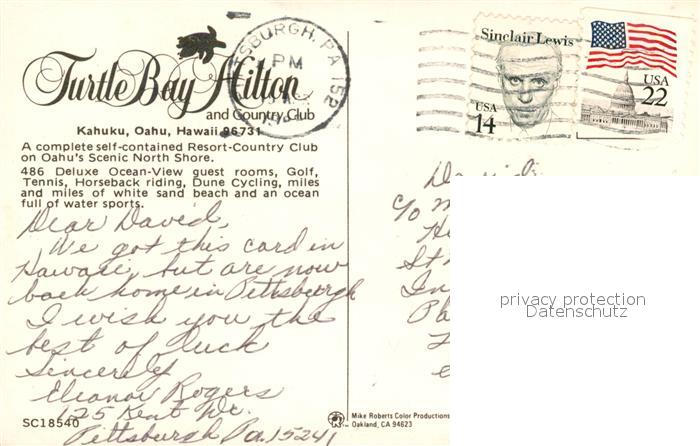 Turtle Bay Hilton
and Country Club
Kahuku, Oahu, Hawaii 96731
A complete self-contained Resort-Country Club
on Oahu's Scenic North Shore.
486 Deluxe Ocean-View guest rooms, Golf,
Tennis, Horseback riding, Dune Cycling, miles
and miles of white sand beach and an ocean
full of water sports.
Dear David,
We got this card in
Hawaii, but are now
back home in Pittsburgh
I wish you the
best of luck
Sincerely
Eleanor Rogers
125 Kent Dr.
Pittsburgh Pa. 15241
SC18540
SBURGH, PA 152
PM
Sinclair Lewis
USA
14
USA
22
c/o
St
In
privacy protection
Datenschutz
Mike Roberts Color Productions
Oakland, CA 94623